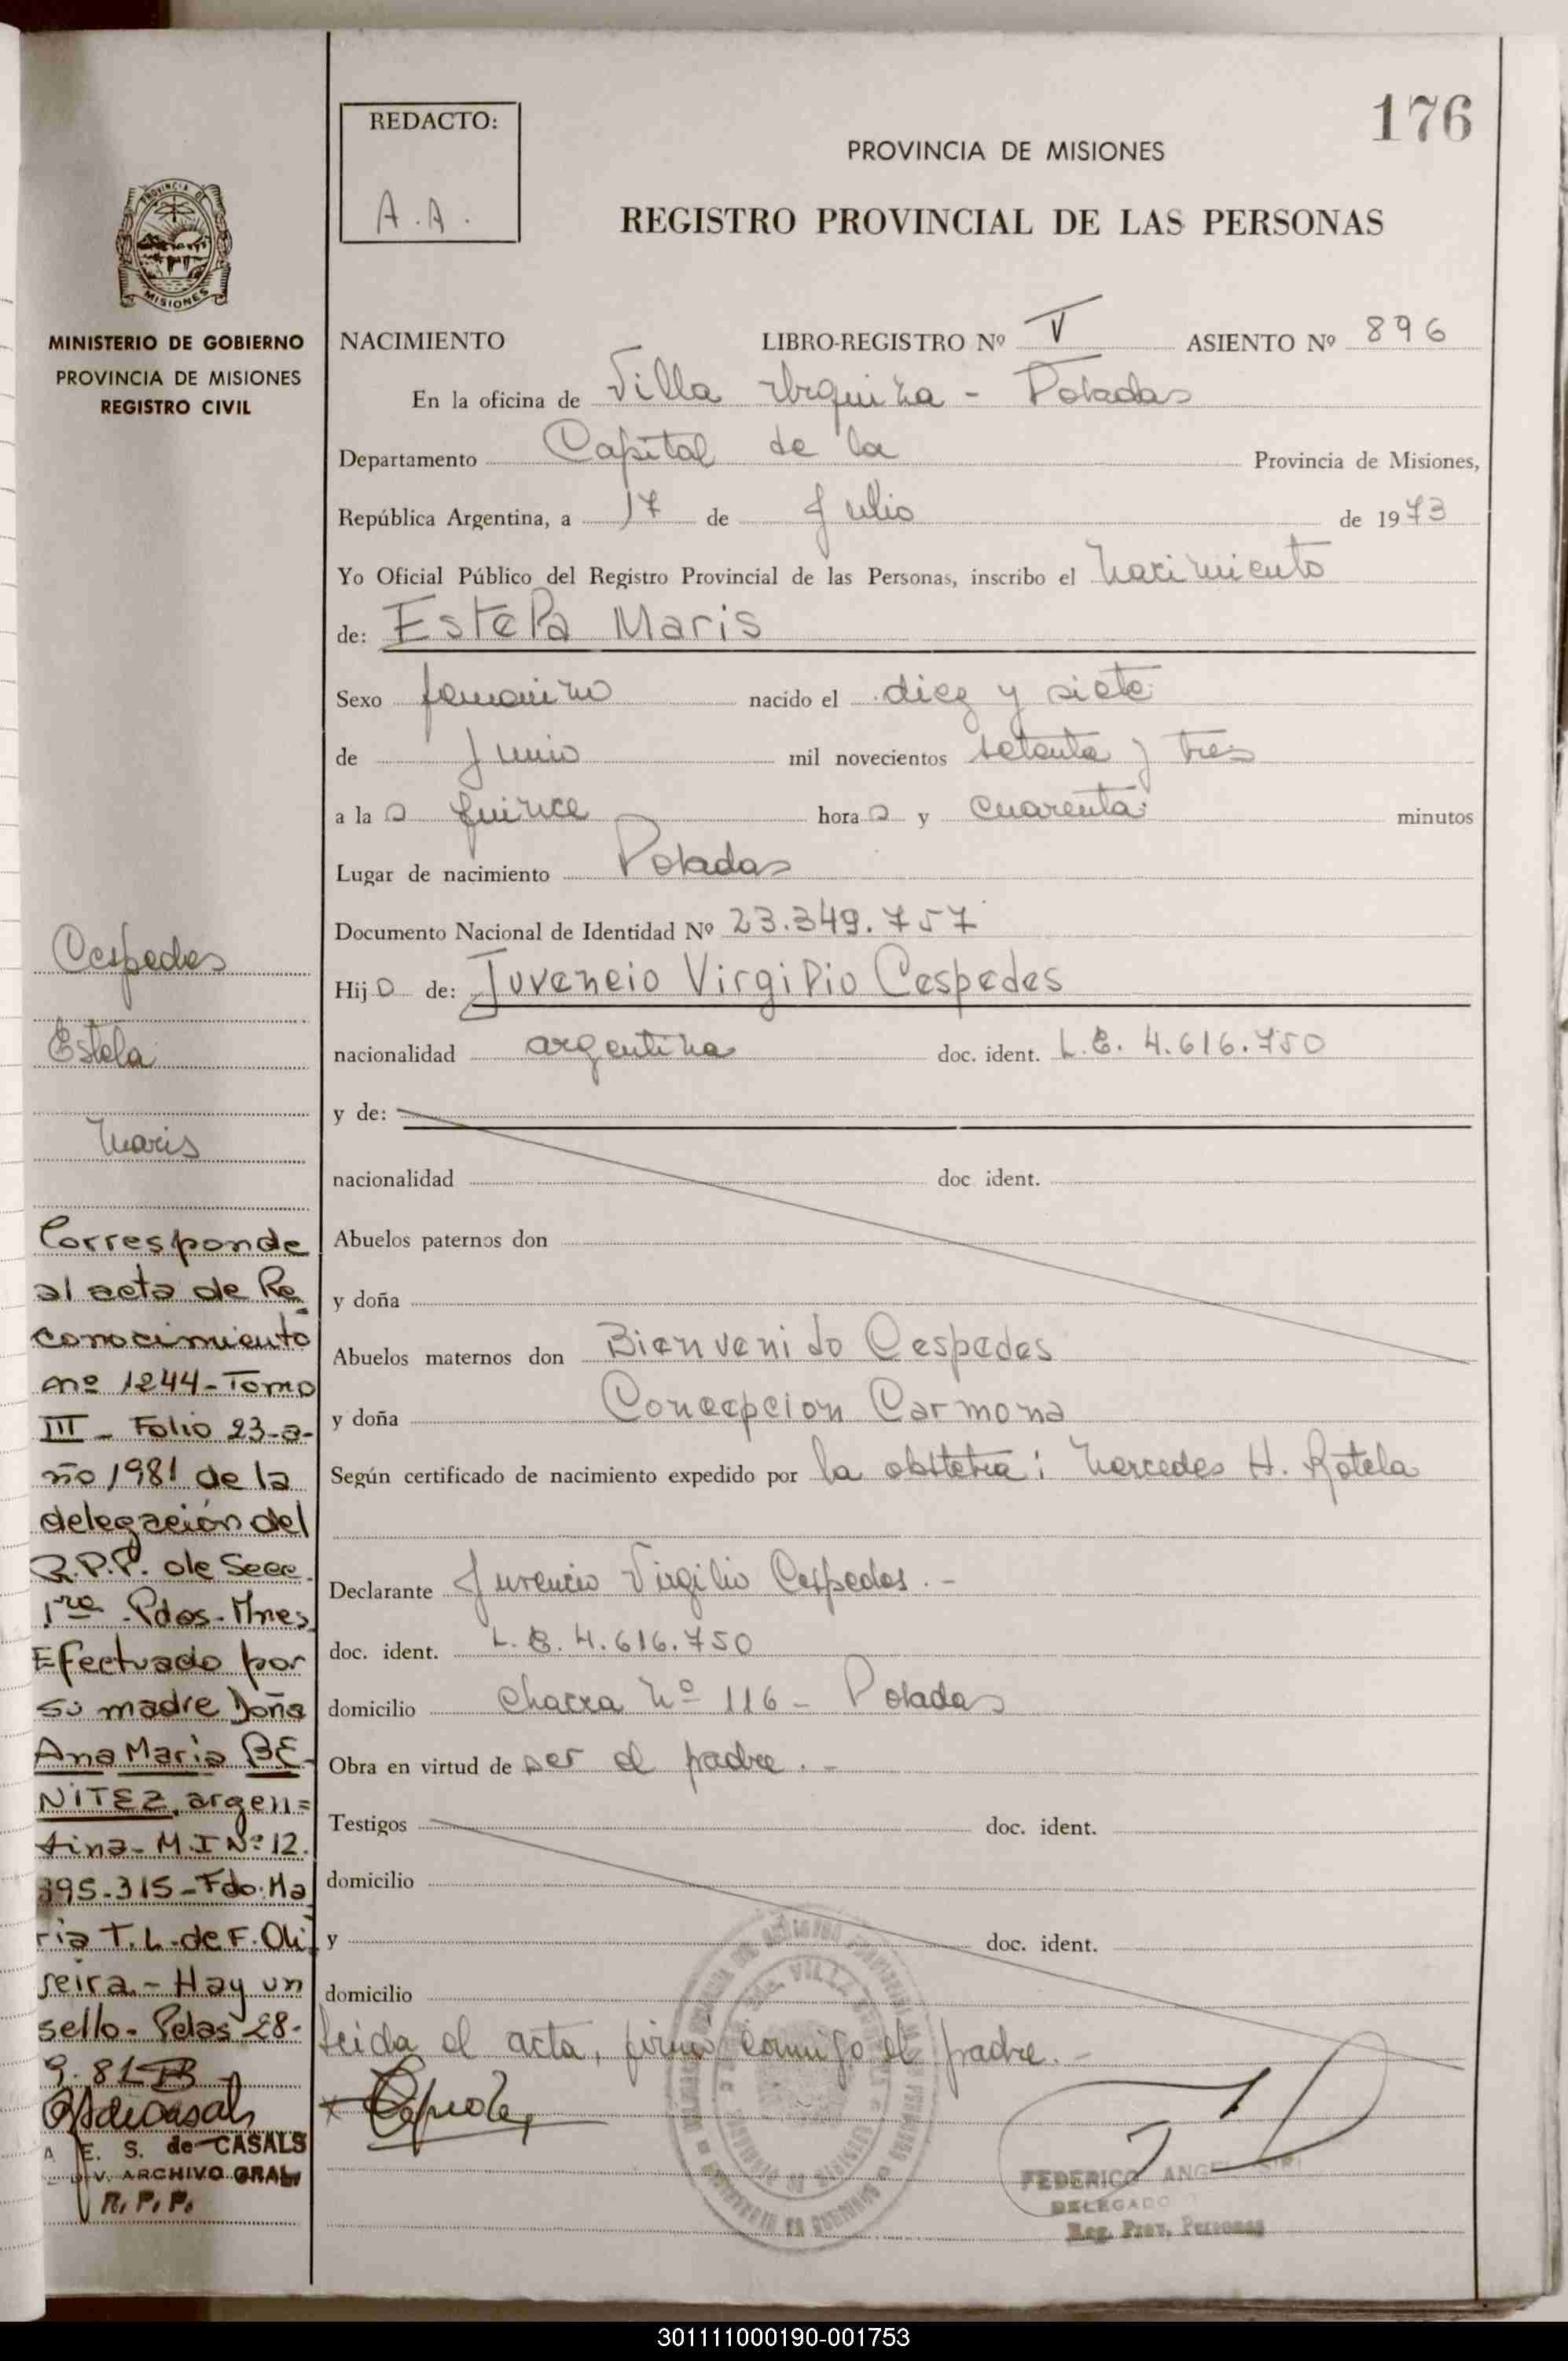 176
REDACTO:
A.A.
PROVINCIA DE MISIONES
REGISTRO PROVINCIAL DE LAS PERSONAS
PROVINCIA DE
MISIONES
MINISTERIO DE GOBIERNO
PROVINCIA DE MISIONES
REGISTRO CIVIL
NACIMIENTO LIBRO-REGISTRO Nº V ASIENTO Nº 896
En la oficina de Villa Urquiza - Posadas
Departamento Capital de la Provincia de Misiones,
República Argentina, a 17 de Julio de 1973
Yo Oficial Público del Registro Provincial de las Personas, inscribo el Nacimiento
de: Estela Maris
Sexo femenino nacido el diez y siete
de Junio mil novecientos setenta y tres
a la s quince hora s y cuarenta minutos
Lugar de nacimiento Posadas
Documento Nacional de Identidad Nº 23.349.757
Hij a de: Juvencio Virgilio Cespedes
nacionalidad argentina doc. ident. L.E. 4.616.750
y de:
nacionalidad doc ident.
Abuelos paternos don
y doña
Abuelos maternos don Bienvenido Cespedes
y doña Concepcion Carmona
Según certificado de nacimiento expedido por la obstetra: Mercedes H. Rotela
Declarante Juvencio Virgilio Cespedes.-
doc. ident. L.E. 4.616.750
domicilio Chacra Nº 116 - Posadas
Obra en virtud de ser el padre.-
Testigos doc. ident.
domicilio
y doc. ident.
domicilio
Leida el acta, firma conmigo el padre.-
FEDERICO ANGEL
DELEGADO
Reg. Prov. Personas
Cespedes
Estela
Maris
Corresponde
al acta de Re
conocimiento
nº 1244-Tomo
III - Folio 23-a-
ño 1981 de la
delegación del
R.P.P. de Secc.
1ra - Pdas - Mnes
Efectuado por
su madre Doña
Ana Maria BE-
NITEZ, argen=
tina - M.I Nº 12.
395.315 - Fdo: Ma
ria T.L. de F. Oli
veira.- Hay un
sello- Pdas 28-
9-81
E. S. de CASALS
ARCHIVO GRAL.
R.P.P.
301111000190-001753